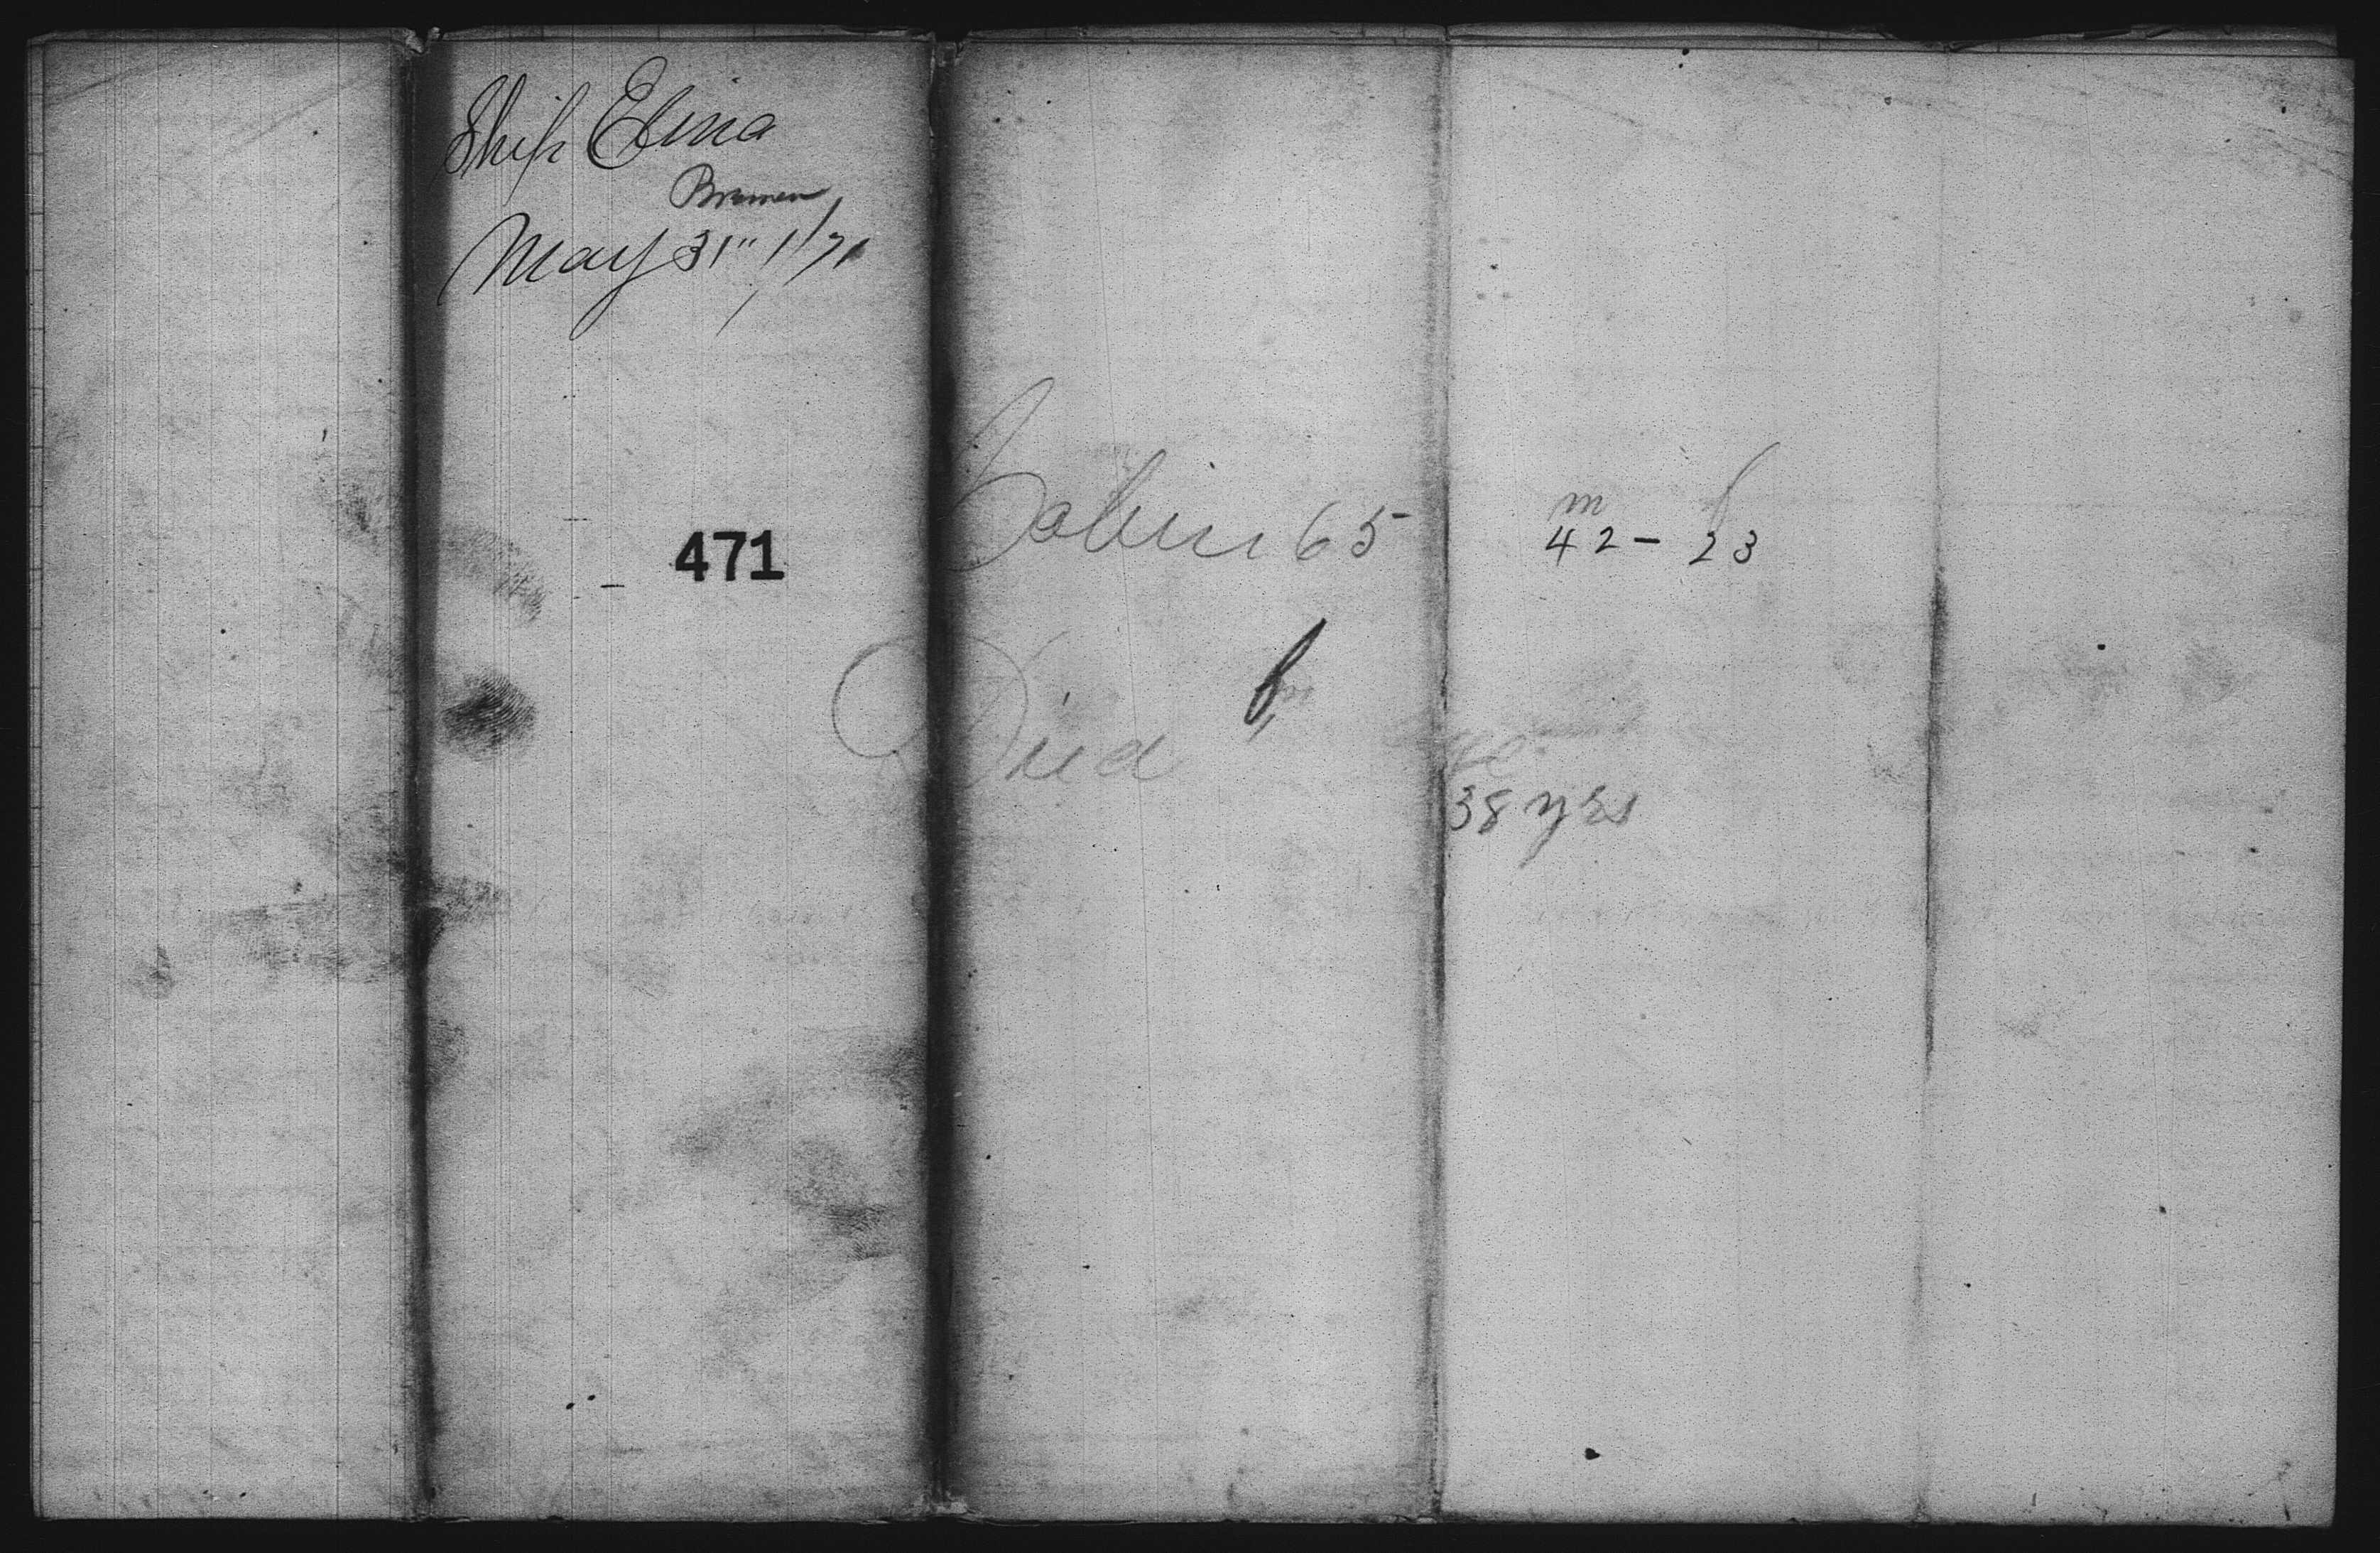 Ship Elena
Bremen
May 31" 1871
471
Cabin 65
m f
42 - 23
Died
38 yrs